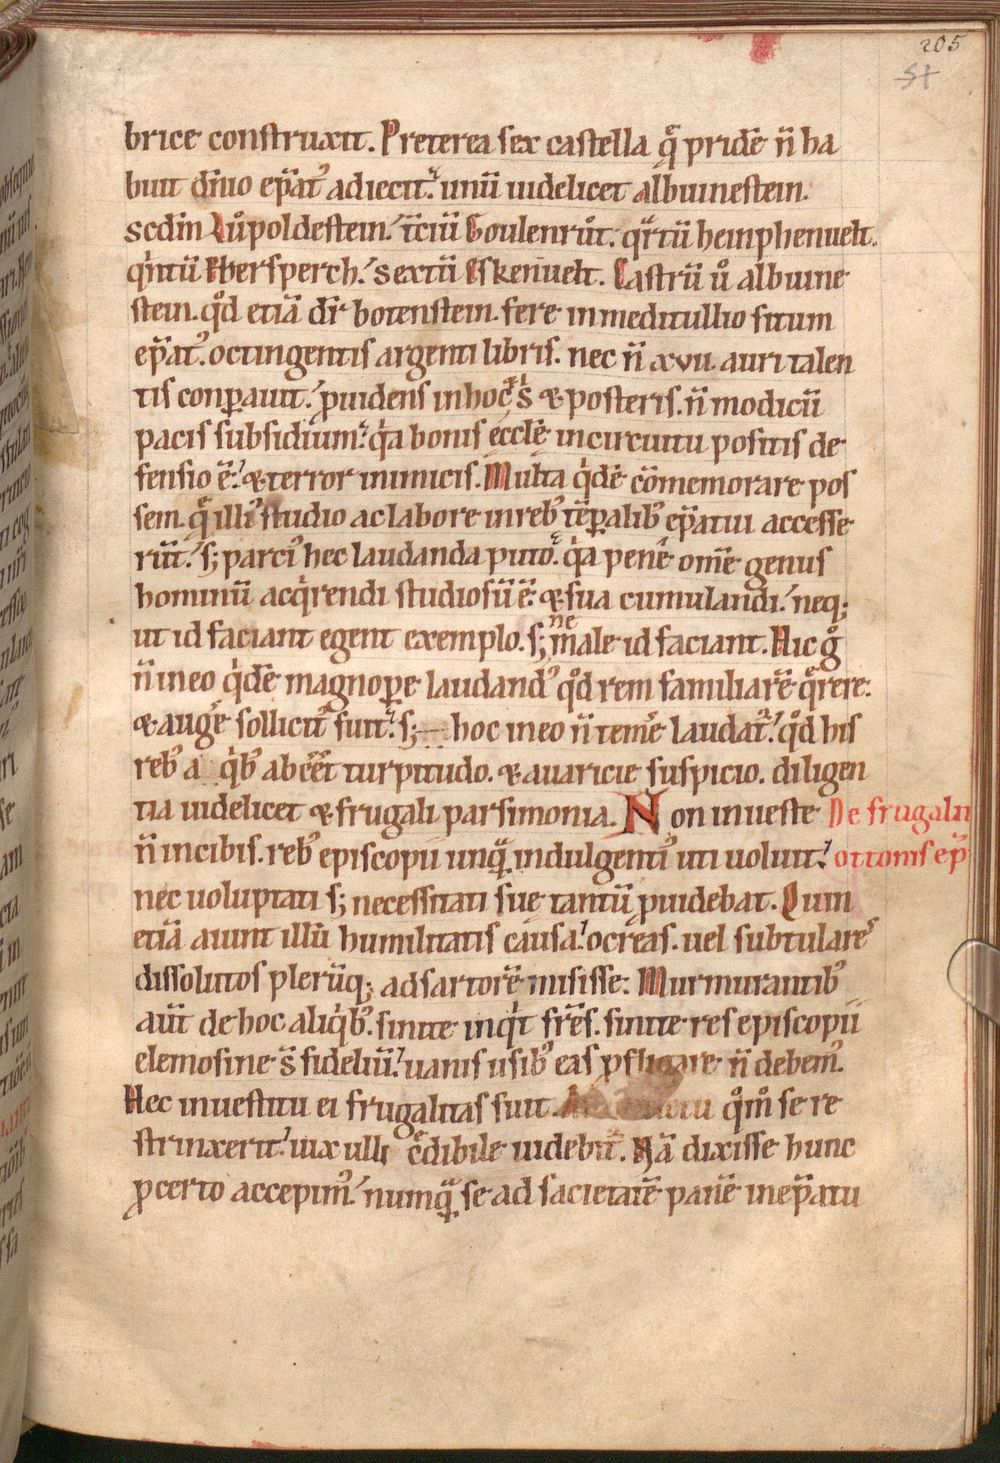 205
51
brice construxit. Preterea sex castella q̄ pridē n̄ ha
buit dn̄io ep̄at᾽ adiecit. unū uidelicet albuinestein.
scd̄m Lůpoldestein. t̄ciū Goulenrůt. qᵃrtū hemphenuelt.
qⁱntū Ebersperch. sextū Eskenuelt. Castrū ů albuine
stein. qͦd etiā dr̄ botenstein. fere in meditullio situm
ep̄at᾽. octingentis argenti libris. nec n̄ xvii. auri talen
tis conꝑauit. ꝓuidens in hoc sⁱ s̄ & posteris. n̄ modicū
pacis subsidium. qⁱa bonis eccłe in circuitu positis de
fensio ē. & terror inimicis. Multa qⁱdē cōmemorare pos
sem. q̄ illi᾽ studio ac labore in reb᾽ tēꝑalib᾽ ep̄atui accesse
rūt. s; parci᾽ hec laudanda puto. qⁱa pene om̄e genus
hominū acqⁱrendi studiosū ē. & sua cumulandi. neq;
ut id faciant egent exemplo. s; ne male id faciant. Hic gͦ
n̄ in eo qⁱdē magnoꝑe laudand᾽ qͦd rem familiarē q̄rere.
& augē sollicit᾽ fuit. s; hoc in eo n̄ temē laudat᾽. qͦd his
reb᾽ a qⁱb᾽ abēēt turpitudo. & auaricie suspicio. diligen
tia uidelicet & frugali parsimonia. Non in ueste De frugalit
n̄ in cibis. reb᾽ episcopii unqᵃ indulgenti᾽ uti uoluit. ottonis ep̄
nec uoluptati s; necessitati sue tantū ꝓuidebat. Qum
etiā aiunt illū humilitatis causa. ocreas. uel subtulare᾽
dissolutos plerūq; ad sartorē misisse. Murmurantib᾽
aūt de hoc aliqⁱb᾽. sinite inqⁱt fr̄es. sinite res episcopii
elemosine s̄ fideliū. uanis usib᾽ eas ꝓfligare n̄ debem᾽.
Hec in uestitu ei frugalitas fuit. qͦm se re
strinxerit. uix ulli c̄dibile uidebit᾽. Nā dixisse hunc
ꝓcerto accepim᾽. numqᵃ se ad sacietatē panē in ep̄atu